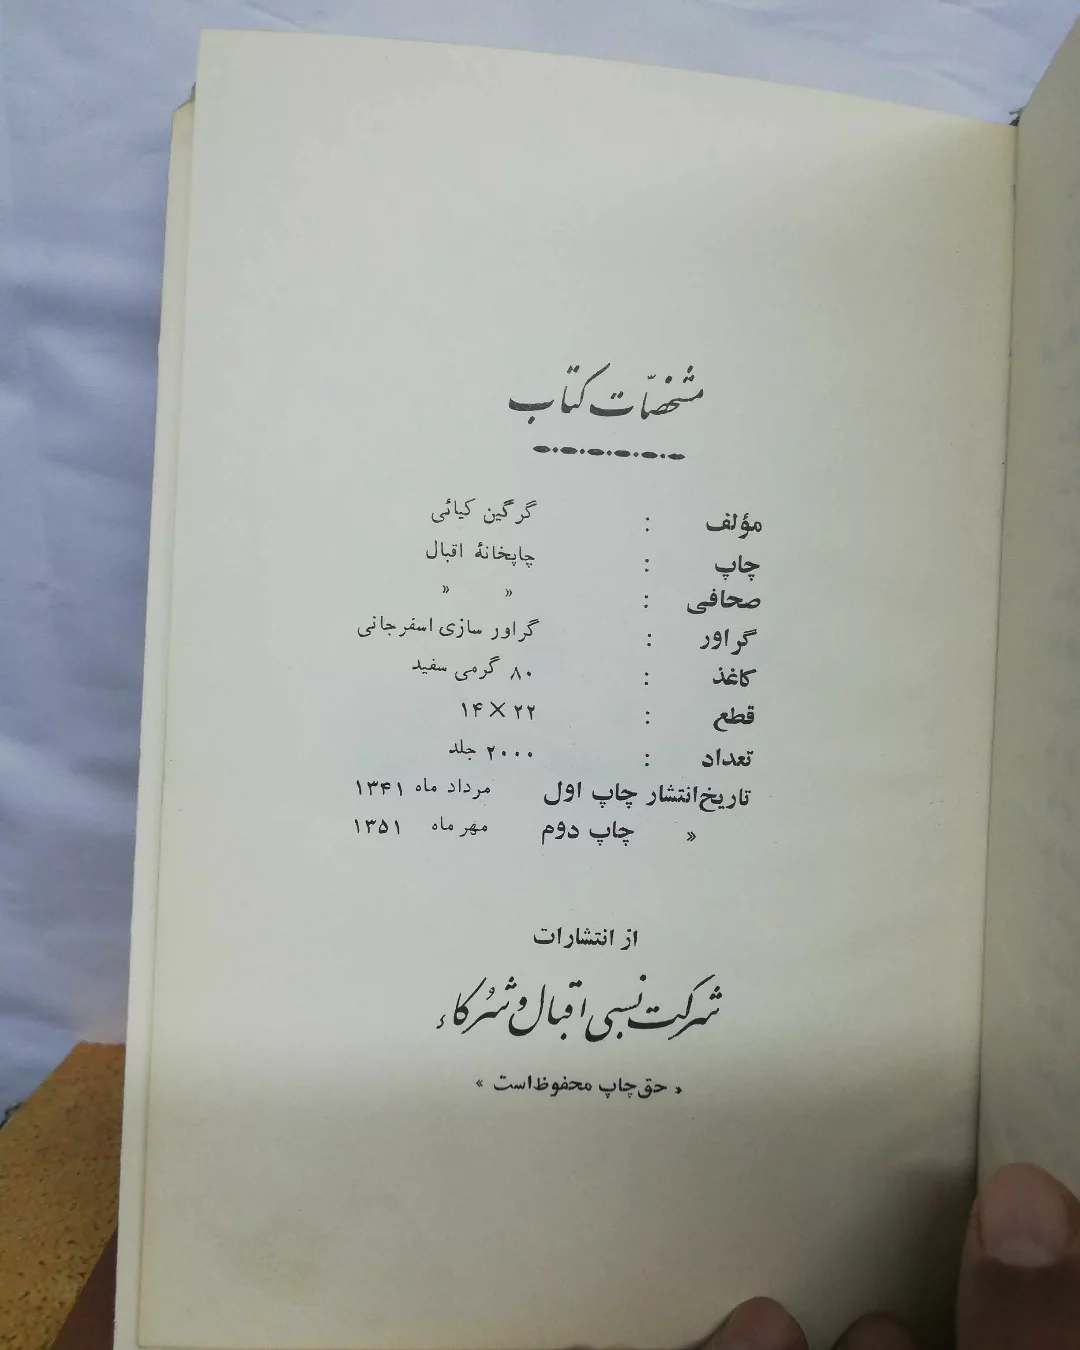 مشخصّات کتاب
مؤلف : گرگین کیائی
چاپ : چاپخانهٔ اقبال
صحافی : » »
گراور : گراور سازی اسفرجانی
کاغذ : ۸۰ گرمی سفید
قطع : ۲۲ × ۱۴
تعداد : ۲۰۰۰ جلد
تاریخ انتشار چاپ اول مرداد ماه ۱۳۴۱
» چاپ دوم مهر ماه ۱۳۵۱
از انتشارات
شرکت نسبی اقبال و شُرکاء
« حق چاپ محفوظ است »